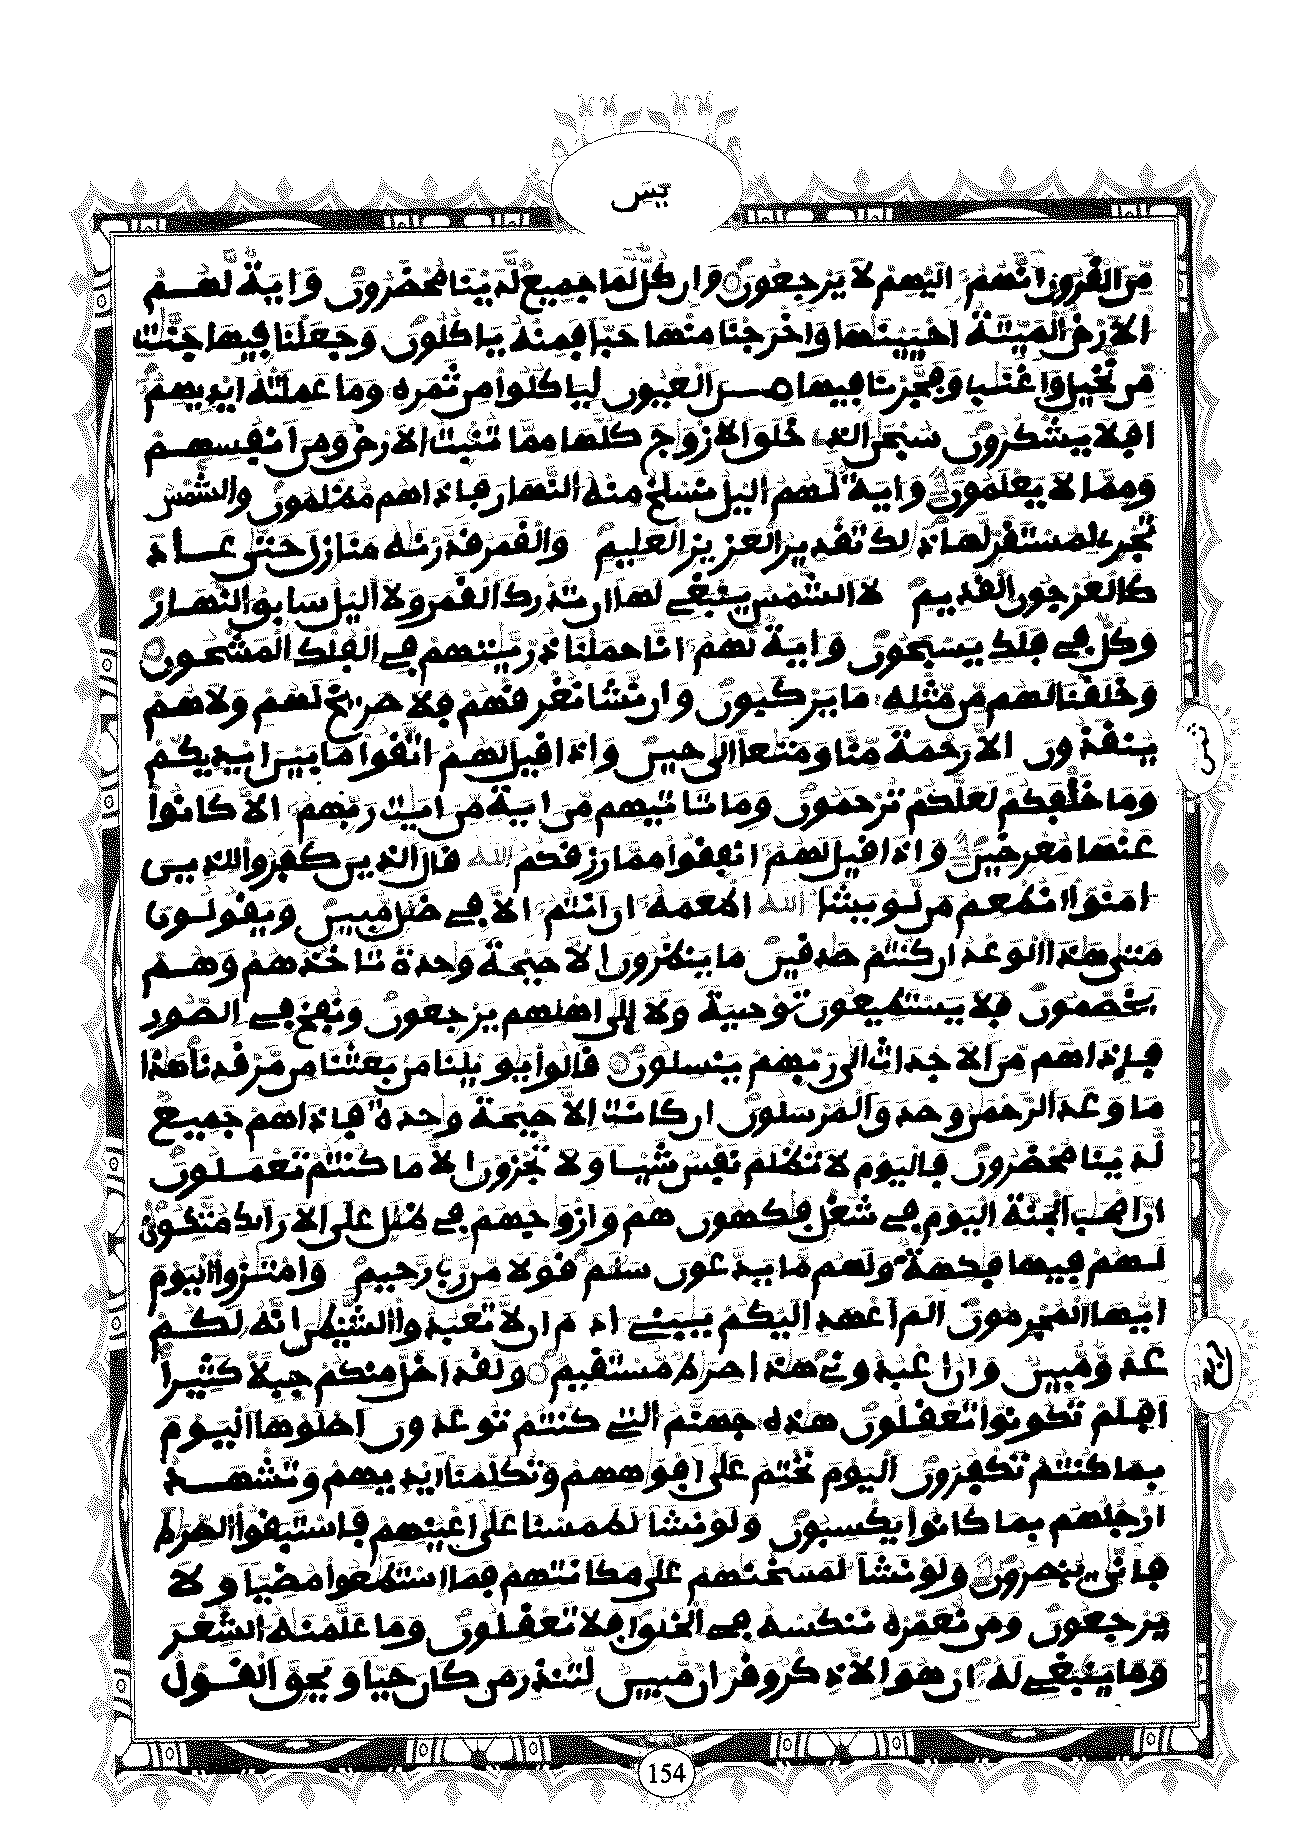 يس
مِّنَ الْقُرُونِ أَنَّهُمْ إِلَيْهِمْ لَا يَرْجِعُونَ وَإِن كُلٌّ لَّمَا جَمِيعٌ لَّدَيْنَا مُحْضَرُونَ وَءَايَةٌ لَّهُمُ
الْأَرْضُ الْمَيِّتَةُ أَحْيَيْنَٰهَا وَأَخْرَجْنَا مِنْهَا حَبًّا فَمِنْهُ يَاكُلُونَ وَجَعَلْنَا فِيهَا جَنَّٰتٍ
مِّن نَّخِيلٍ وَأَعْنَٰبٍ وَفَجَّرْنَا فِيهَا مِنَ الْعُيُونِ لِيَاكُلُوا مِن ثَمَرِهِ وَمَا عَمِلَتْهُ أَيْدِيهِمْ
أَفَلَا يَشْكُرُونَ سُبْحَٰنَ الَّذِي خَلَقَ الْأَزْوَٰجَ كُلَّهَا مِمَّا تُنبِتُ الْأَرْضُ وَمِنْ أَنفُسِهِمْ
وَمِمَّا لَا يَعْلَمُونَ وَءَايَةٌ لَّهُمُ الَّيْلُ نَسْلَخُ مِنْهُ النَّهَارَ فَإِذَا هُم مُّظْلِمُونَ وَالشَّمْسُ
تَجْرِي لِمُسْتَقَرٍّ لَّهَا ذَٰلِكَ تَقْدِيرُ الْعَزِيزِ الْعَلِيمِ وَالْقَمَرُ قَدَّرْنَٰهُ مَنَازِلَ حَتَّىٰ عَادَ
كَالْعُرْجُونِ الْقَدِيمِ لَا الشَّمْسُ يَنۢبَغِي لَهَا أَن تُدْرِكَ الْقَمَرَ وَلَا الَّيْلُ سَابِقُ النَّهَارِ
وَكُلٌّ فِي فَلَكٍ يَسْبَحُونَ وَءَايَةٌ لَّهُمْ أَنَّا حَمَلْنَا ذُرِّيَّٰتِهِمْ فِي الْفُلْكِ الْمَشْحُونِ
وَخَلَقْنَا لَهُم مِّن مِّثْلِهِ مَا يَرْكَبُونَ وَإِن نَّشَأْ نُغْرِقْهُمْ فَلَا صَرِيخَ لَهُمْ وَلَا هُمْ
يُنقَذُونَ إِلَّا رَحْمَةً مِّنَّا وَمَتَٰعًا إِلَىٰ حِينٍ وَإِذَا قِيلَ لَهُمُ اتَّقُوا مَا بَيْنَ أَيْدِيكُمْ
وَمَا خَلْفَكُمْ لَعَلَّكُمْ تُرْحَمُونَ وَمَا تَاتِيهِم مِّنْ ءَايَةٍ مِّنْ ءَايَٰتِ رَبِّهِمْ إِلَّا كَانُوا
عَنْهَا مُعْرِضِينَ وَإِذَا قِيلَ لَهُمْ أَنفِقُوا مِمَّا رَزَقَكُمُ اللَّهُ قَالَ الَّذِينَ كَفَرُوا لِلَّذِينَ
ءَامَنُوا أَنُطْعِمُ مَن لَّوْ يَشَاءُ اللَّهُ أَطْعَمَهُ إِنْ أَنتُمْ إِلَّا فِي ضَلَٰلٍ مُّبِينٍ وَيَقُولُونَ
مَتَىٰ هَٰذَا الْوَعْدُ إِن كُنتُمْ صَٰدِقِينَ مَا يَنظُرُونَ إِلَّا صَيْحَةً وَٰحِدَةً تَاخُذُهُمْ وَهُمْ
يَخَصِّمُونَ فَلَا يَسْتَطِيعُونَ تَوْصِيَةً وَلَا إِلَىٰ أَهْلِهِمْ يَرْجِعُونَ وَنُفِخَ فِي الصُّورِ
فَإِذَا هُم مِّنَ الْأَجْدَاثِ إِلَىٰ رَبِّهِمْ يَنسِلُونَ قَالُوا يَٰوَيْلَنَا مَنۢ بَعَثَنَا مِن مَّرْقَدِنَا هَٰذَا
مَا وَعَدَ الرَّحْمَٰنُ وَصَدَقَ الْمُرْسَلُونَ إِن كَانَتْ إِلَّا صَيْحَةً وَٰحِدَةً فَإِذَا هُمْ جَمِيعٌ
لَّدَيْنَا مُحْضَرُونَ فَالْيَوْمَ لَا تُظْلَمُ نَفْسٌ شَيْئًا وَلَا تُجْزَوْنَ إِلَّا مَا كُنتُمْ تَعْمَلُونَ
إِنَّ أَصْحَٰبَ الْجَنَّةِ الْيَوْمَ فِي شُغْلٍ فَٰكِهُونَ هُمْ وَأَزْوَٰجُهُمْ فِي ظِلَٰلٍ عَلَى الْأَرَائِكِ مُتَّكِـُٔونَ
لَهُمْ فِيهَا فَٰكِهَةٌ وَلَهُم مَّا يَدَّعُونَ سَلَٰمٌ قَوْلًا مِّن رَّبٍّ رَّحِيمٍ وَامْتَٰزُوا الْيَوْمَ
أَيُّهَا الْمُجْرِمُونَ أَلَمْ أَعْهَدْ إِلَيْكُمْ يَٰبَنِي ءَادَمَ أَن لَّا تَعْبُدُوا الشَّيْطَٰنَ إِنَّهُ لَكُمْ
عَدُوٌّ مُّبِينٌ وَأَنُ اعْبُدُونِي هَٰذَا صِرَٰطٌ مُّسْتَقِيمٌ وَلَقَدْ أَضَلَّ مِنكُمْ جِبِلًّا كَثِيرًا
أَفَلَمْ تَكُونُوا تَعْقِلُونَ هَٰذِهِ جَهَنَّمُ الَّتِي كُنتُمْ تُوعَدُونَ اصْلَوْهَا الْيَوْمَ
بِمَا كُنتُمْ تَكْفُرُونَ الْيَوْمَ نَخْتِمُ عَلَىٰ أَفْوَٰهِهِمْ وَتُكَلِّمُنَا أَيْدِيهِمْ وَتَشْهَدُ
أَرْجُلُهُم بِمَا كَانُوا يَكْسِبُونَ وَلَوْ نَشَاءُ لَطَمَسْنَا عَلَىٰ أَعْيُنِهِمْ فَاسْتَبَقُوا الصِّرَٰطَ
فَأَنَّىٰ يُبْصِرُونَ وَلَوْ نَشَاءُ لَمَسَخْنَٰهُمْ عَلَىٰ مَكَانَتِهِمْ فَمَا اسْتَطَٰعُوا مُضِيًّا وَلَا
يَرْجِعُونَ وَمَن نُّعَمِّرْهُ نَنكُسْهُ فِي الْخَلْقِ أَفَلَا تَعْقِلُونَ وَمَا عَلَّمْنَٰهُ الشِّعْرَ
وَمَا يَنۢبَغِي لَهُ إِنْ هُوَ إِلَّا ذِكْرٌ وَقُرْءَانٌ مُّبِينٌ لِّتُنذِرَ مَن كَانَ حَيًّا وَيَحِقَّ الْقَوْلُ
ثمن
154